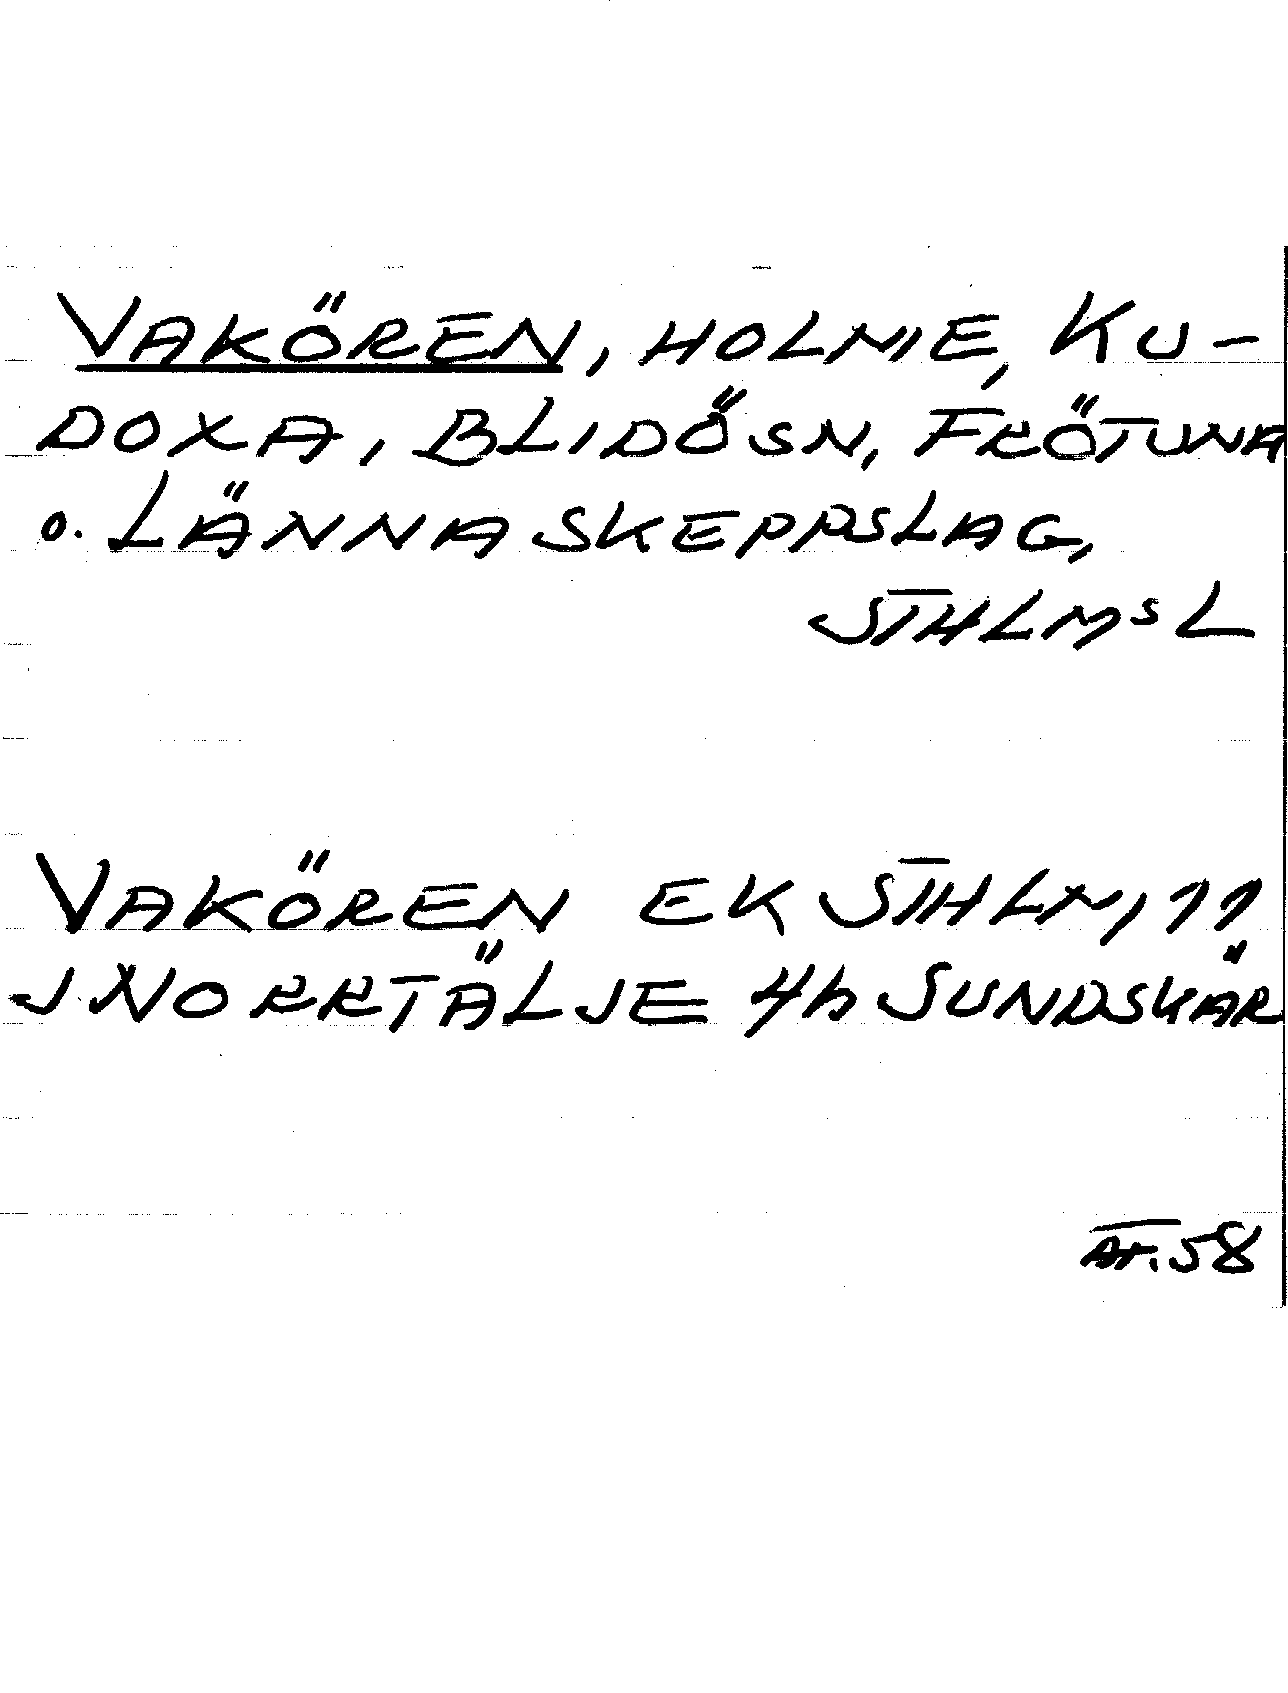 VAKÖREN, HOLME, KU-
DOXA, BLIDÖSN, FRÖTUNA
O. LÄNNA SKEPPSLAG,
STHLMS L
VAKÖREN EK STHLM, 11
J NORRTÄLJE 4h SUNDSKÄR
58